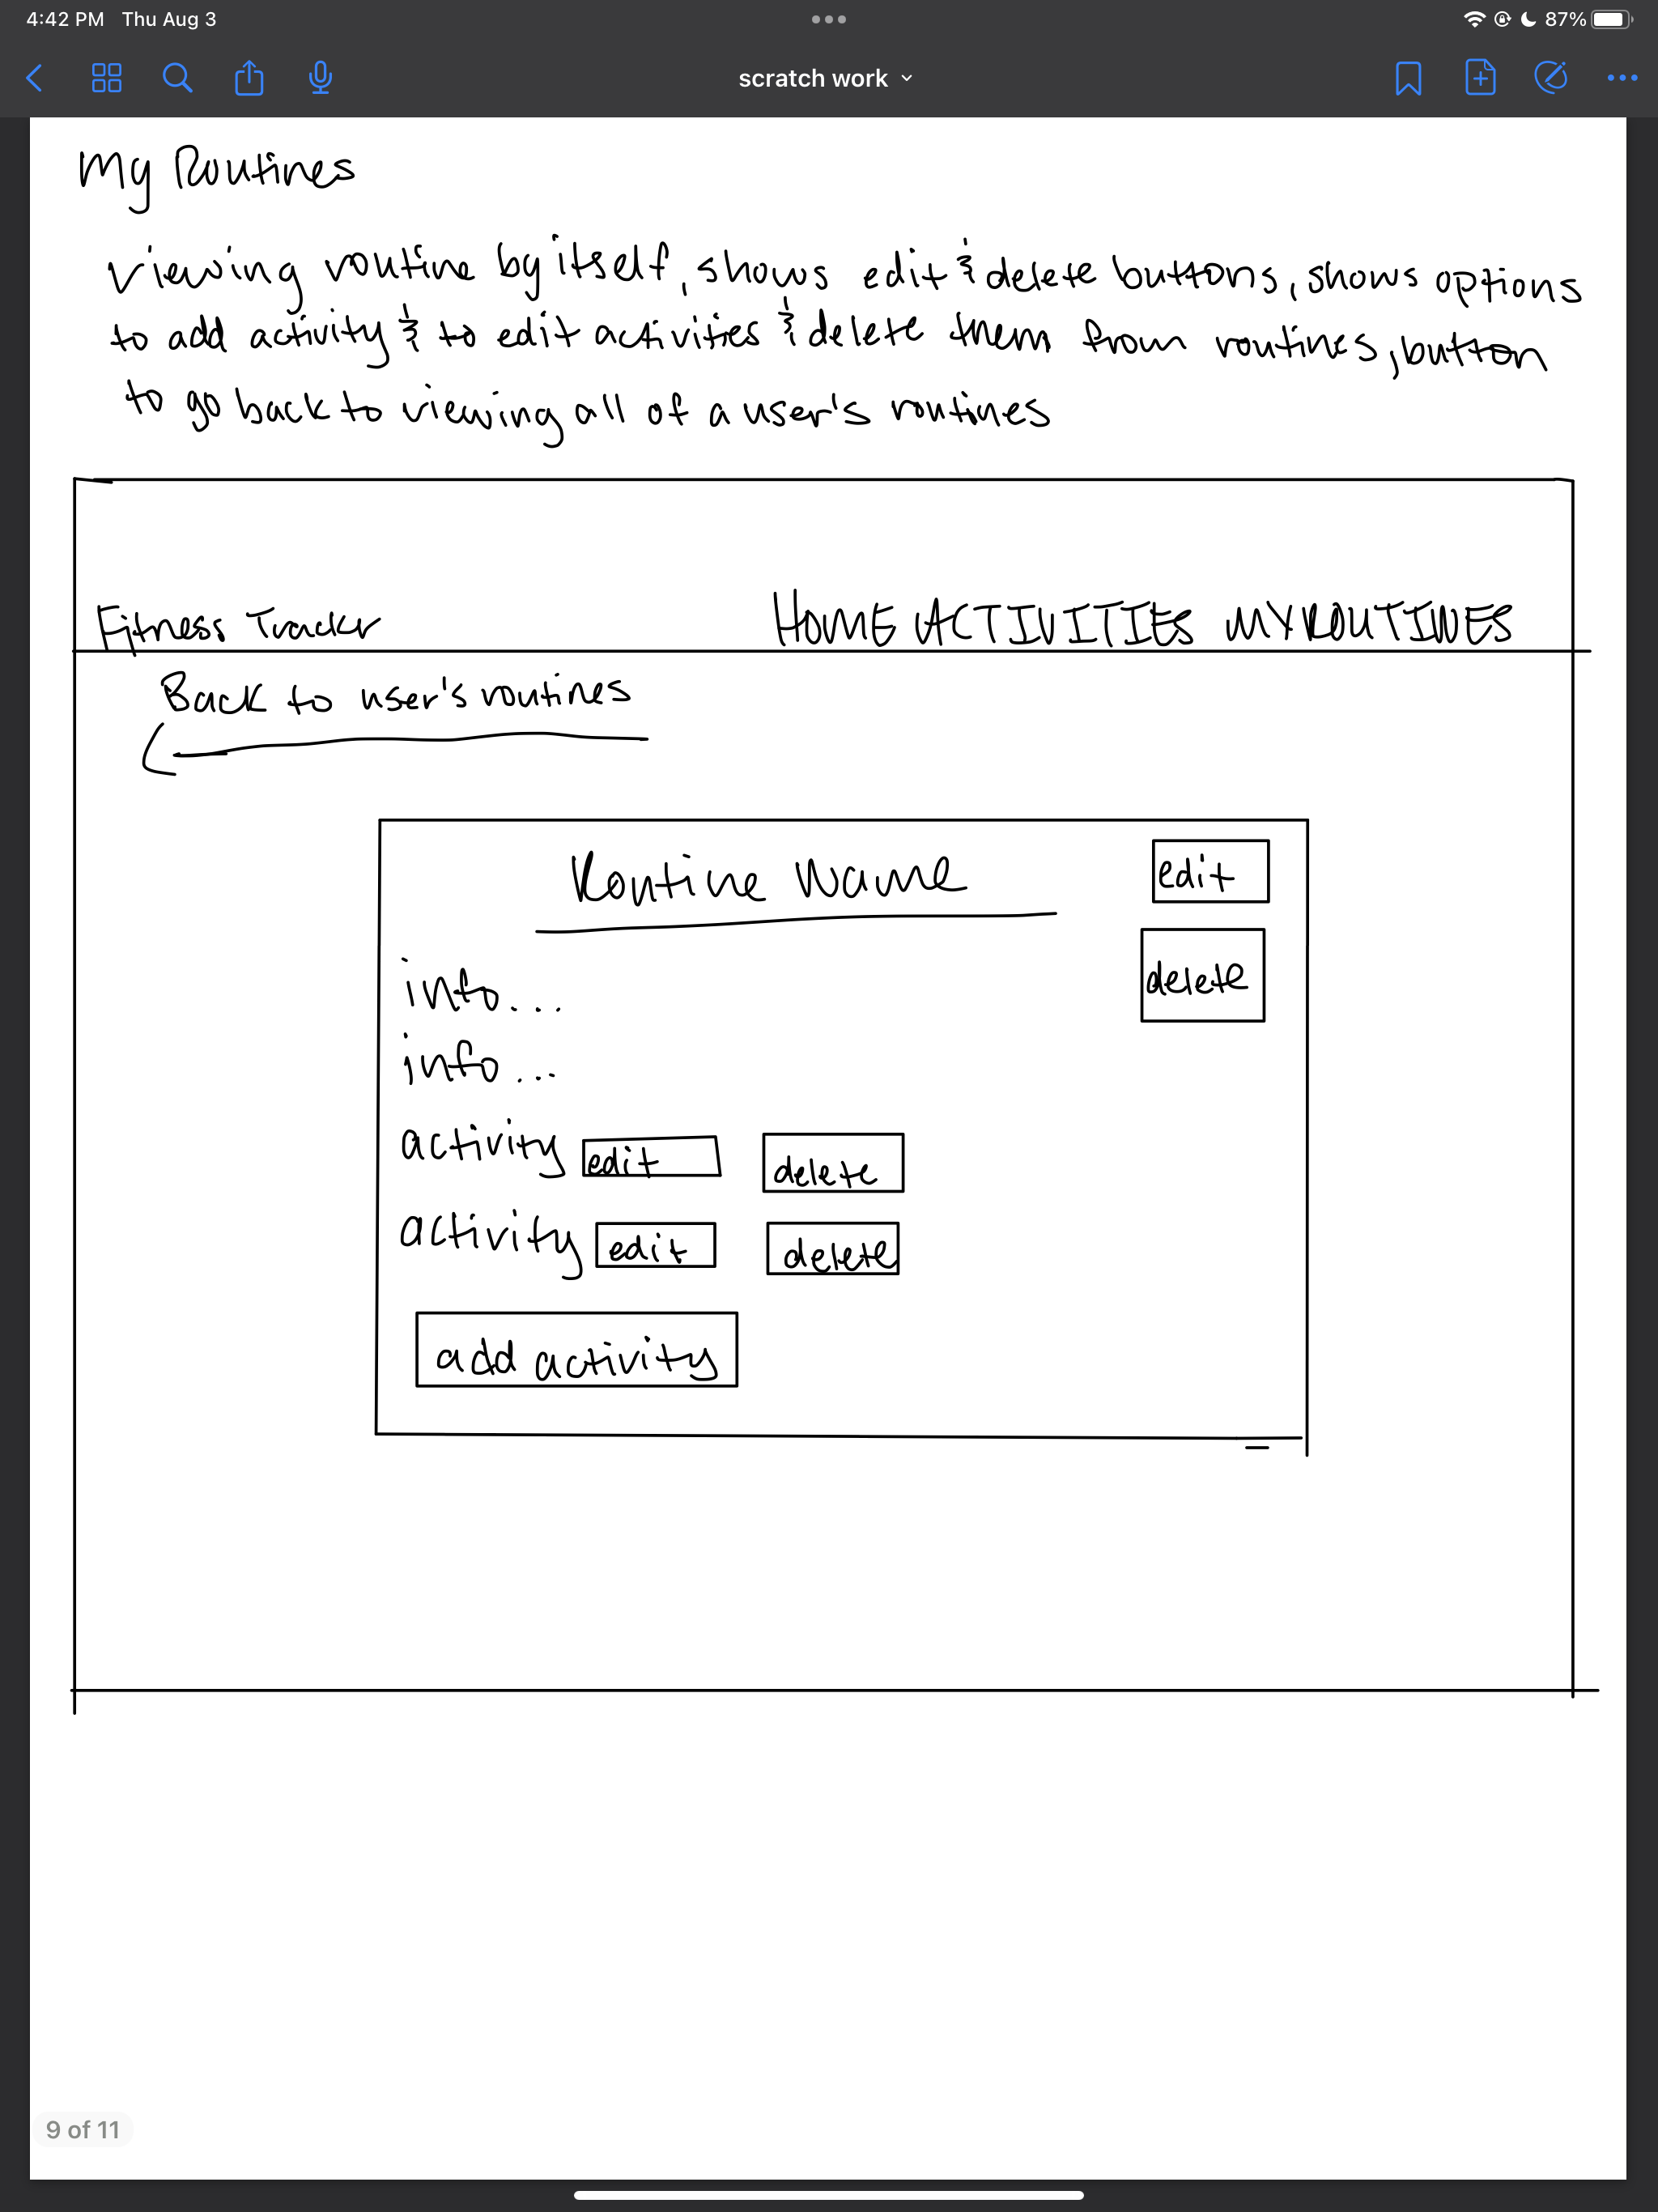 4:42 PM Thu Aug 3
87%
scratch work
My Routines
viewing routine by itself, shows edit & delete buttons, shows options
to add activity & to edit activities & delete them from routines, button
to go back to viewing all of a user's routines
Fitness Tracker HOME ACTIVITIES MY ROUTINES
Back to user's routines
Routine Name
edit
delete
info...
info...
activity edit delete
activity edit delete
add activity
9 of 11